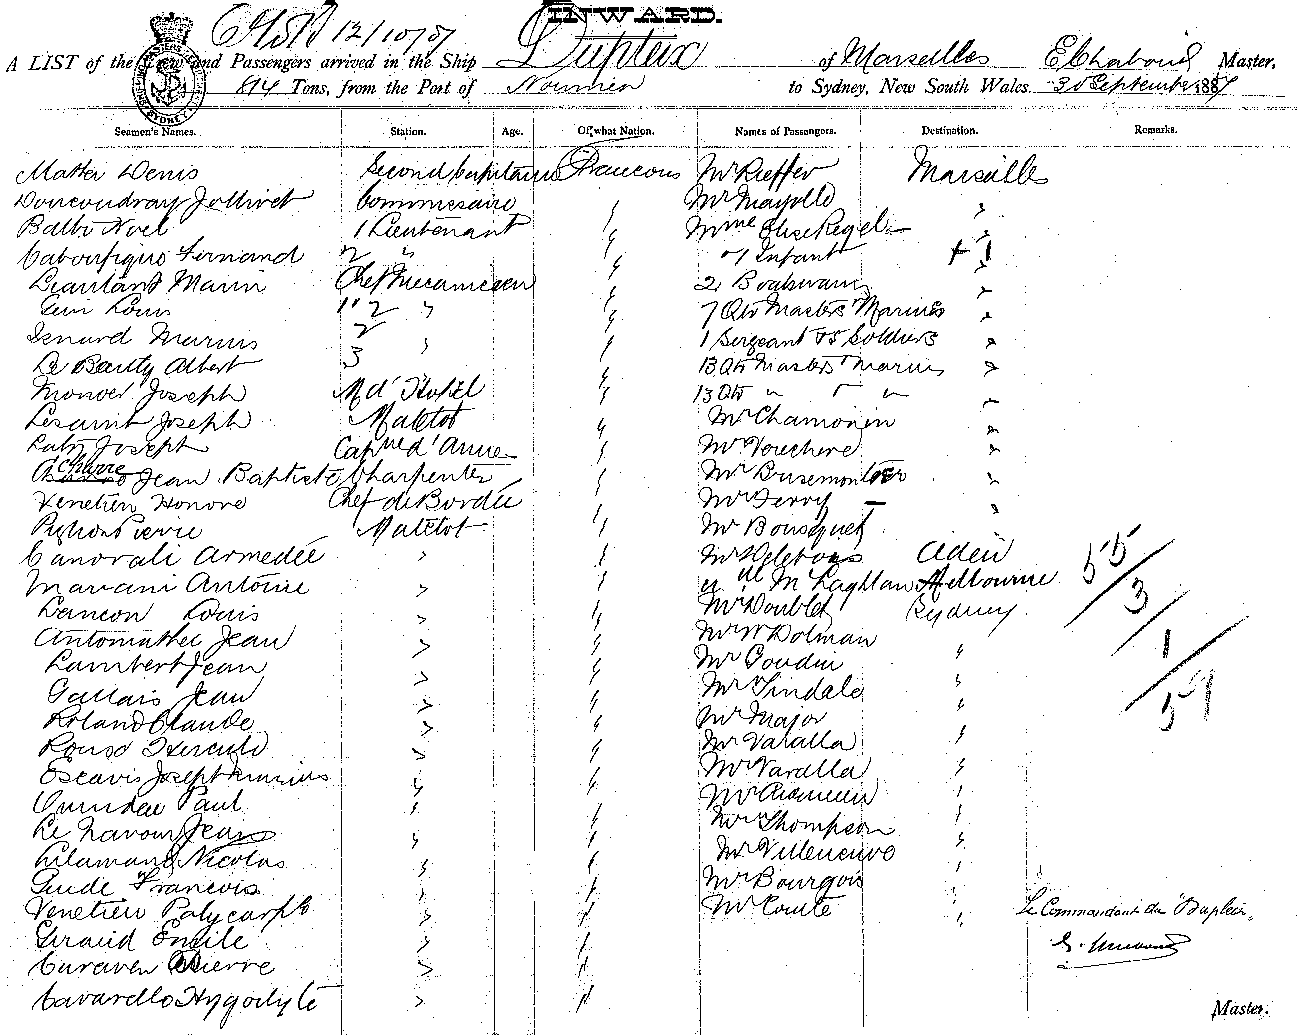 INWARD.
12/10/87
A LIST of the Crew and Passengers arrived in the Ship Dupleix of Marseilles E Chabaud Master,
814 Tons, from the Port of Noumea to Sydney, New South Wales, 30 September 1887
SYDNEY
Seamen's Names. Station. Age. Of what Nation. Names of Passengers. Destination. Remarks.
Matter Denis Second Capitaine Francous Mr Kieffer Marseilles
Doucoudray Jollivet Commissaire " Mr Mayolle "
Balbi Noel 1 Lieutenant " Mme Elise Regel "
Fernand 2 " " Infant + 1 "
Leautant Marin Chef Mecanicien " 2 Boatswain "
Louis 1" 2 " " 7 Qtr Masters Marines "
Isnard Marius 2 " 1 Sergeant 85 Soldiers "
De Bauty Albert 3 " " 13 Qtr Masters Marins "
Monver Joseph Md' Hotel " 13 Qtr " " "
Lesaint Joseph Matelot " Mr Chamonin "
Laby Joseph Capne d'Arme " Mr Vouchere "
Jean Baptiste Charpentier " Mr "
Venetien Honore Chef de Bordée " Mr Ferry "
Pierre Matelot " Mr Bousquet
Canovali Armedée " " Mr Aden
Mariani Antoine " " Mc Laghlan Melbourne
Lancon Louis " " Mr Doublet Sydney
Antomathei Jean " " Mr W Dolman
Lambert Jean " " Mr Goudin "
Gallais Jean " " Mr Tindale "
Roland Claude " " Mr Major "
Rouso Hercule " " Mr Varalla "
Escavis Joseph " " Mr Varalla "
Paul " " Mr "
Le Navour Jean " " Mr Thompson "
Lilamand Nicolas " " Mr Villeneuve "
Guide Francois " " Mr Bourgois "
Venetien Polycarpe " " Mr Comte "
Giraud Emile " "
Curaven Pierre " "
Cavarello Hypolyte " "
55/3/1/59
Le Commandant du Dupleix,
Master.